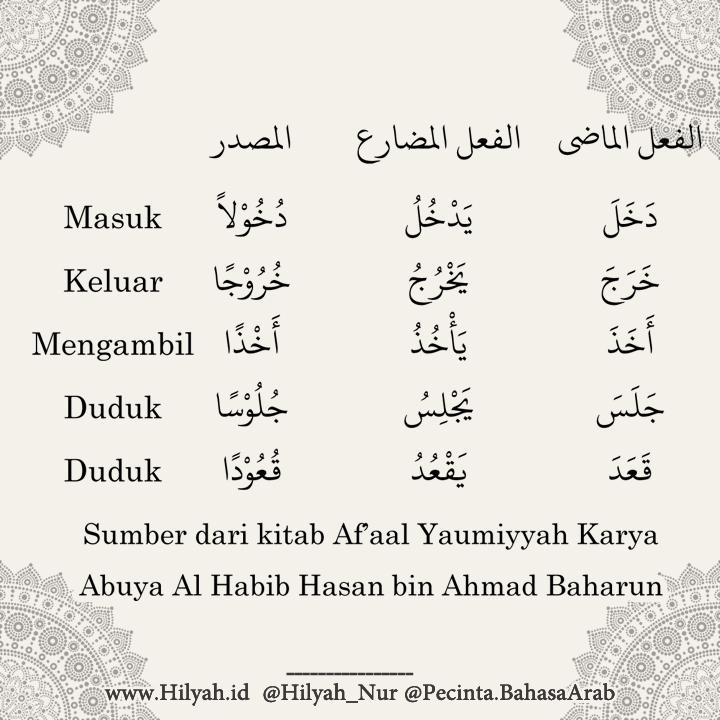 الفعل الماضى الفعل المضارع المصدر
دَخَلَ يَدْخُلُ دُخُوْلاً Masuk
خَرَجَ يَخْرُجُ خُرُوْجًا Keluar
أَخَذَ يَأْخُذُ أَخْذًا Mengambil
جَلَسَ يَجْلِسُ جُلُوْسًا Duduk
قَعَدَ يَقْعُدُ قُعُوْدًا Duduk
Sumber dari kitab Af'aal Yaumiyyah Karya
Abuya Al Habib Hasan bin Ahmad Baharun
www.Hilyah.id @Hilyah_Nur @Pecinta.BahasaArab